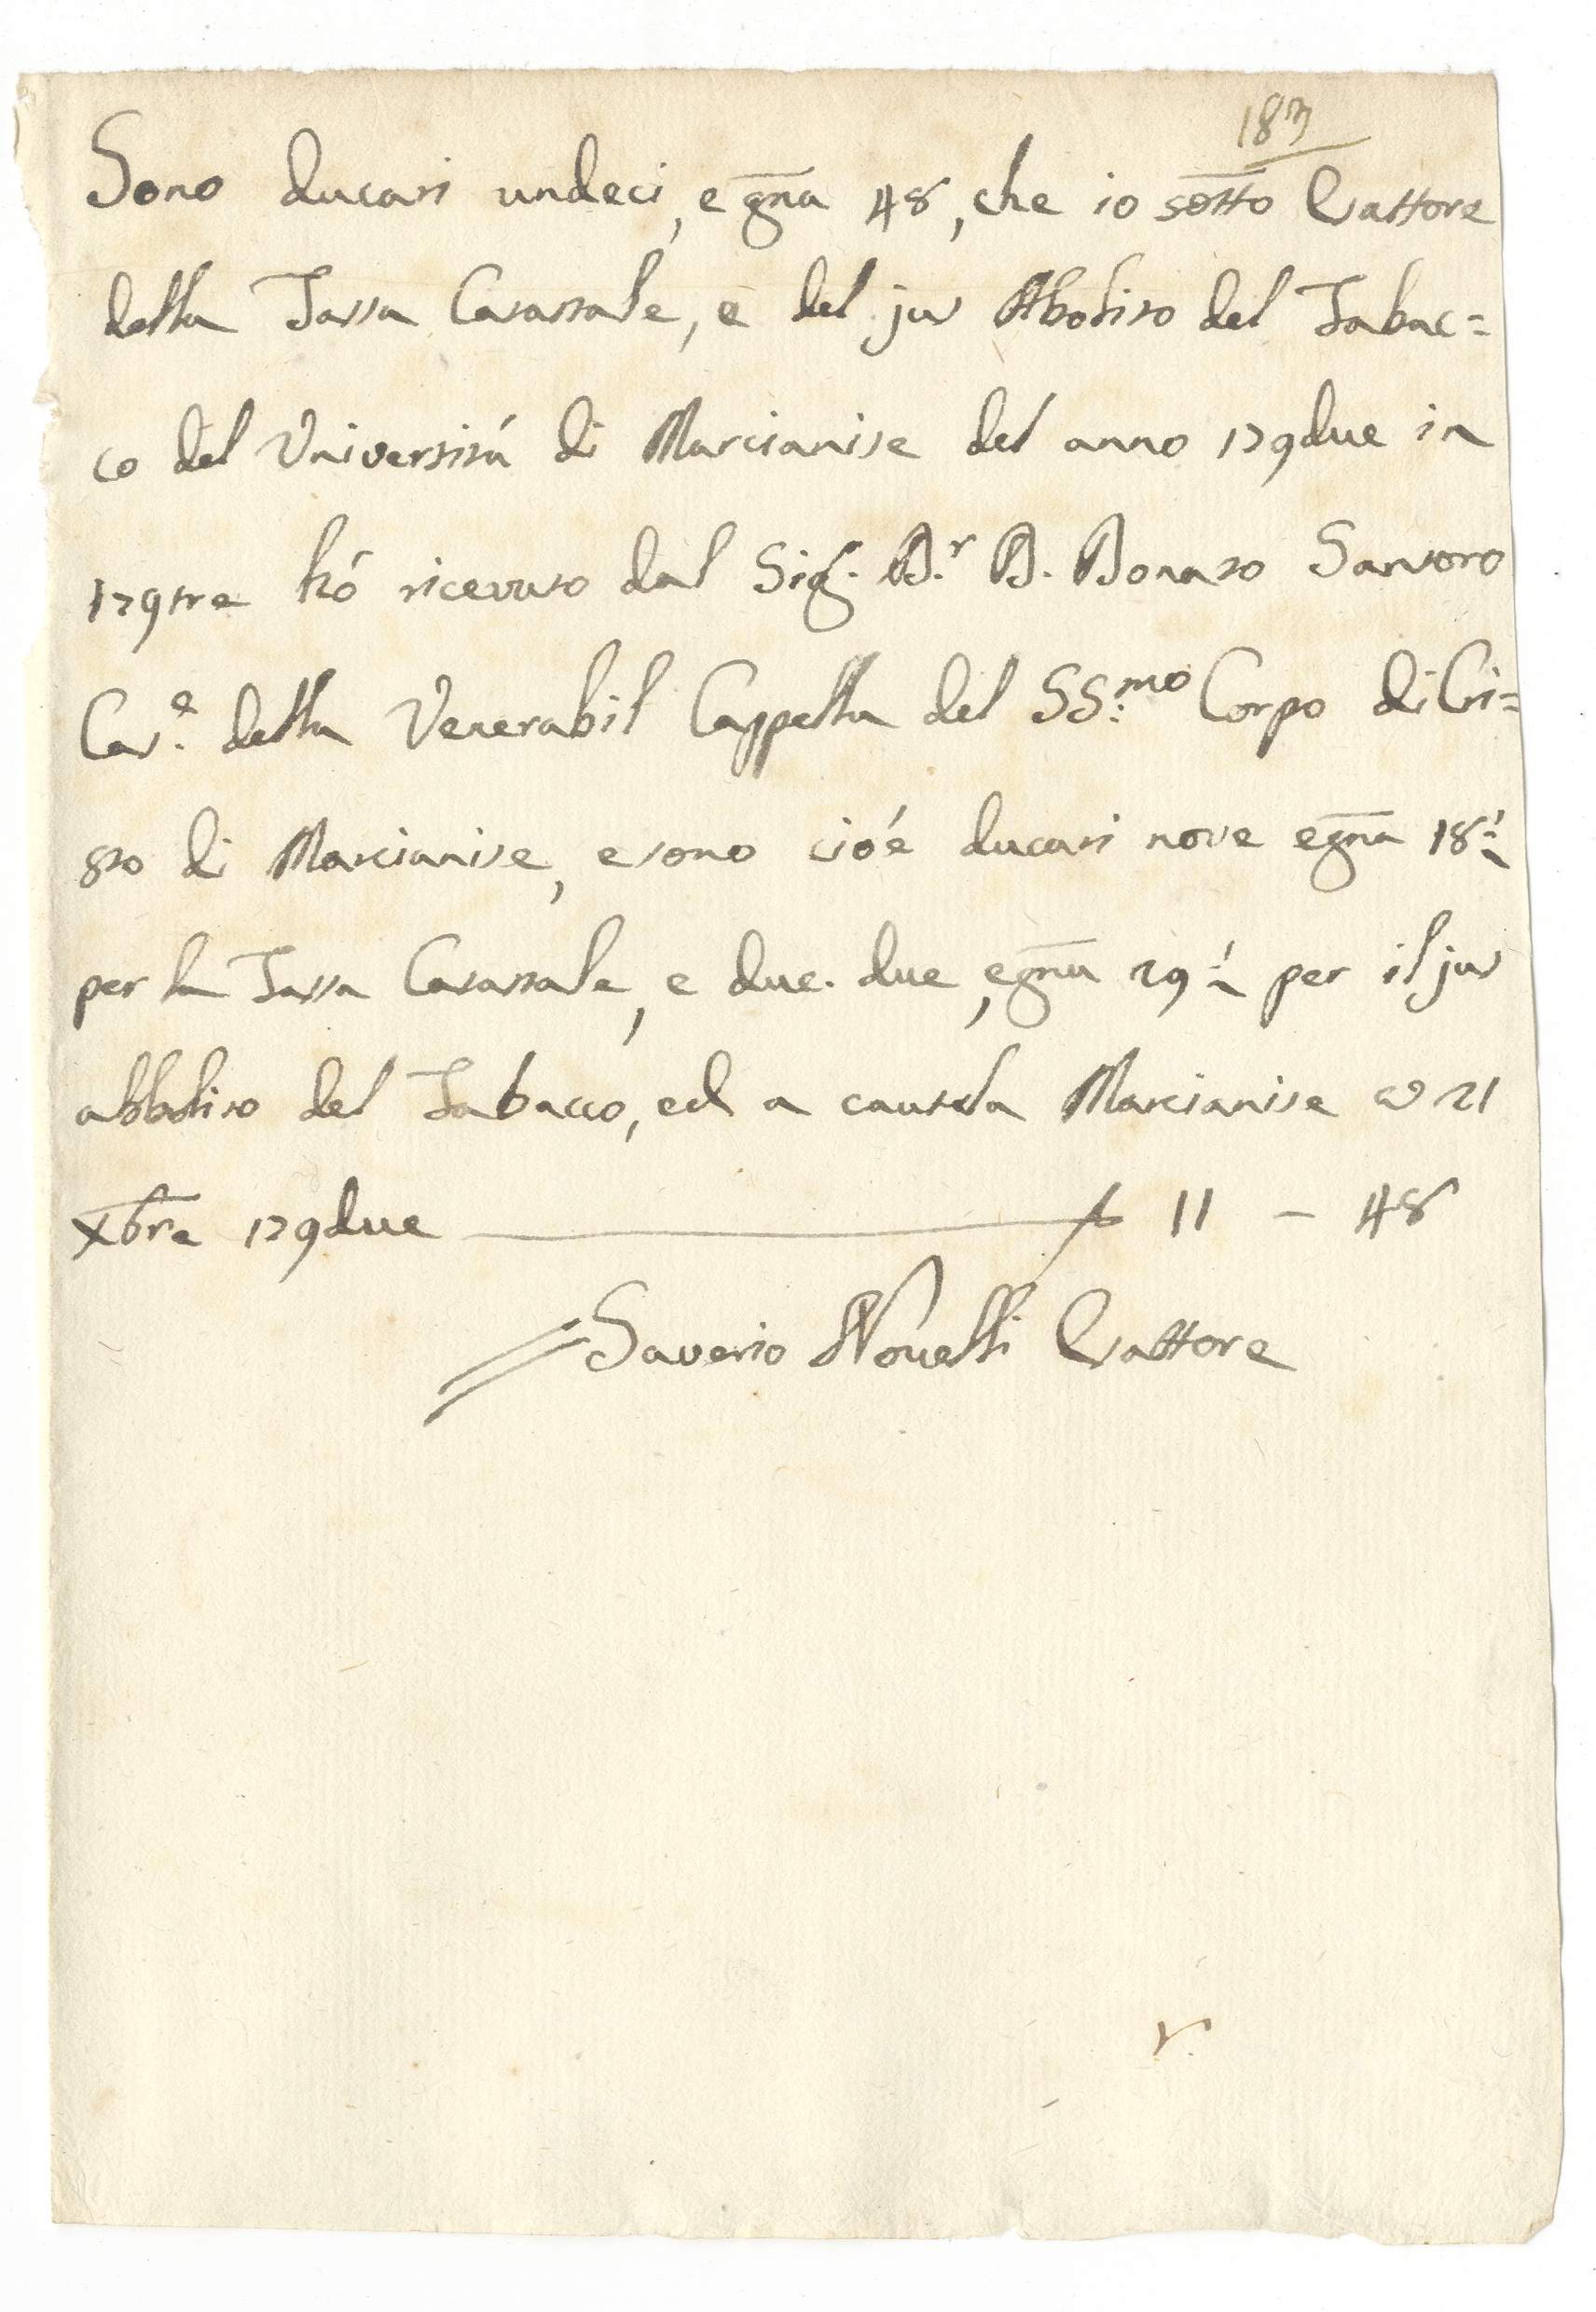 183
Sono ducati undeci, e gna 48, che io sotto Esattore
della Tassa Catastale, e del jus Abolito del Tabac=
co del Università di Marcianise del anno 179due in
179tre hò ricevuto dal Sig.r D.r D. Donato Santoro
Cas.e della Venerabil Cappella del SS:mo Corpo di Cri=
sto di Marcianise, e sono cioé ducati nove e gna 18:½
per la Tassa Catastale, e duc. due, e gna 29:½ per il jus
abbolito del Tabacco, ed a cautela Marcianise 21
Xbre 179due 11 - 48
Saverio Novelli Esattore